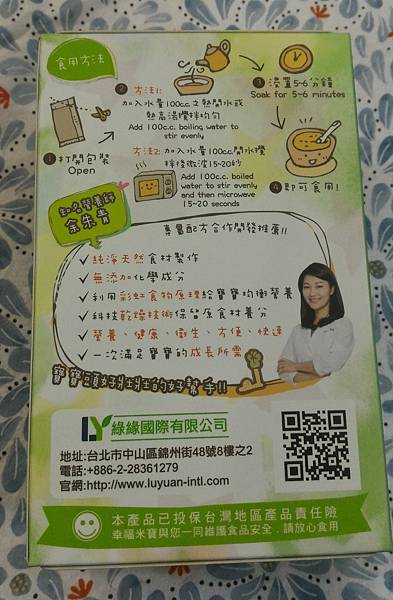 食用方法
❶打開包裝
Open
❷方法1:
加入水量100c.c.之熱開水或
熱高湯攪拌均勻
Add 100c.c. boiling water to
stir evenly
方法2: 加入水量100c.c.開水攪
拌後微波15-20秒
Add 100c.c. boiled
water to stir evenly
and then microwave
15-20 seconds
❸浸置5-6分鐘
Soak for 5-6 minutes
❹即可食用!
知名營養師
余朱青
專屬配方合作開發推薦!!
✓純淨天然食材製作
✓無添加化學成分
✓利用彩虹食物原理給寶寶均衡營養
✓科技乾燥技術保留原食材養分
✓營養、健康、衛生、方便、快速
✓一次滿足寶寶的成長所需
寶寶頭好壯壯的好幫手!!
LY 綠緣國際有限公司
地址:台北市中山區錦州街48號8樓之2
電話:+886-2-28361279
官網:http://www.luyuan-intl.com
本產品已投保台灣地區產品責任險
幸福米寶與您一同維護食品安全．請放心食用